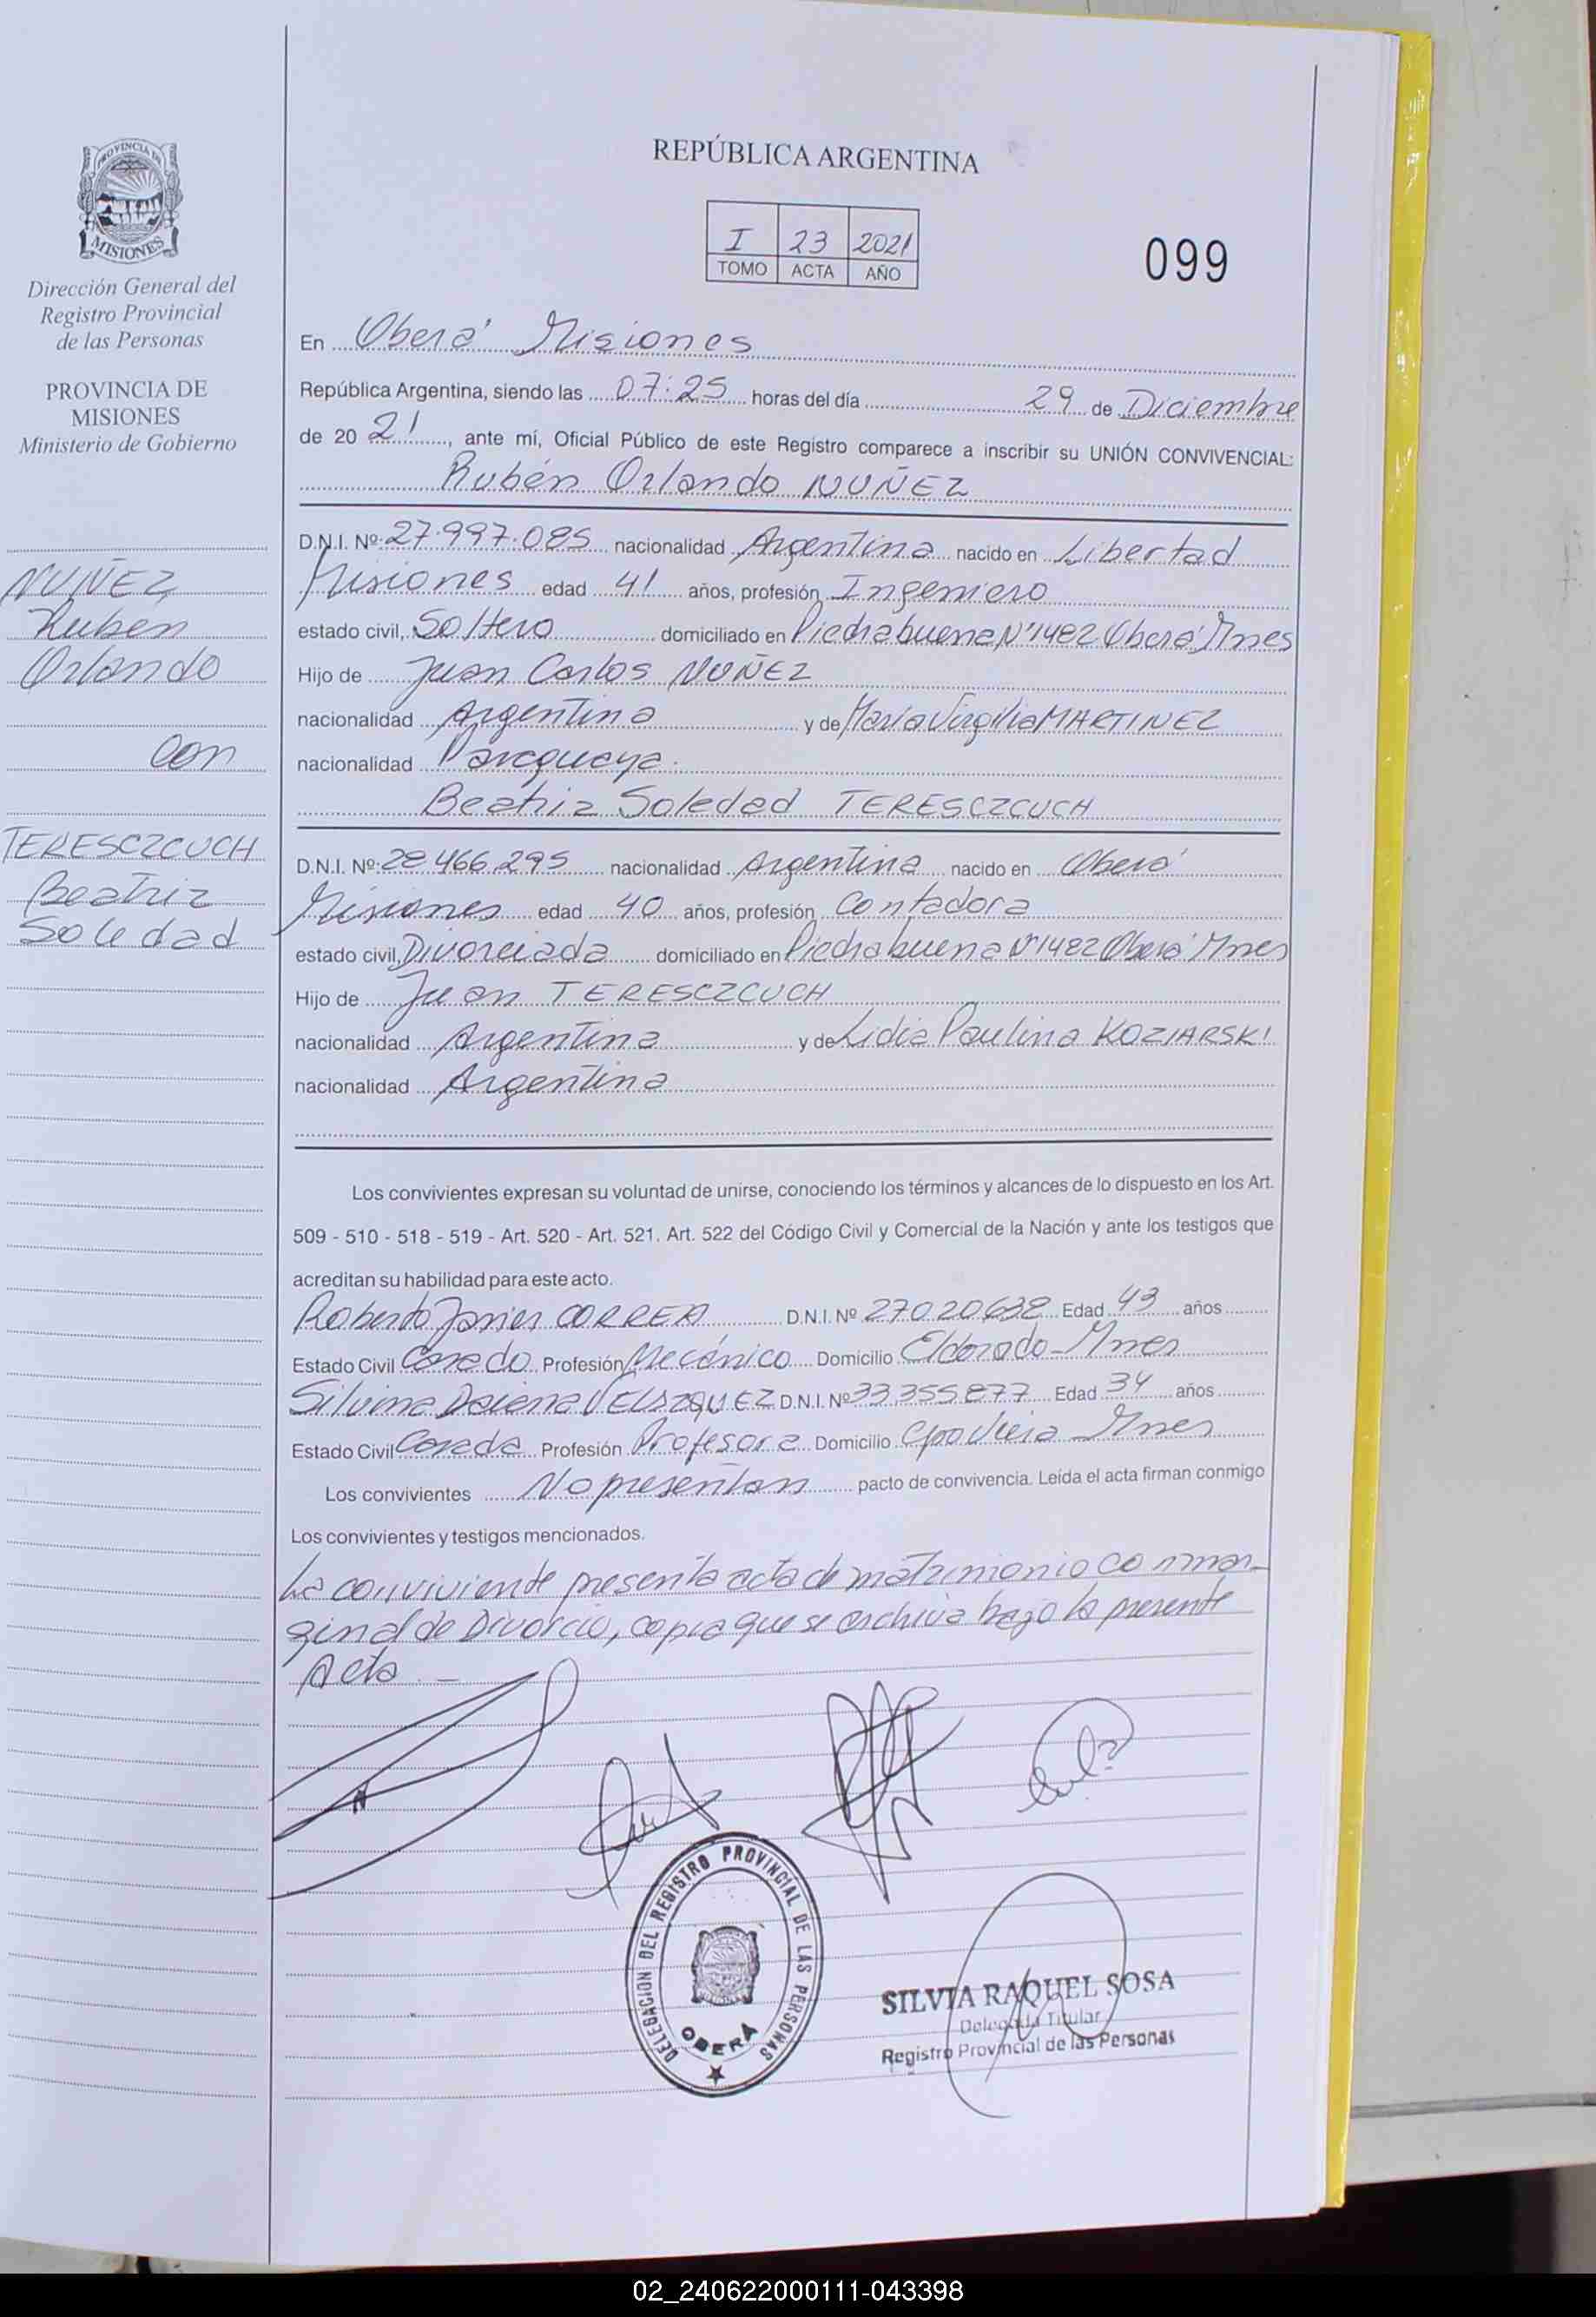 PROVINCIA DE
MISIONES
Dirección General del
Registro Provincial
de las Personas
PROVINCIA DE
MISIONES
Ministerio de Gobierno
NUÑEZ
Ruben
Orlando
con
TERESCZCUCH
Beatriz
Soledad
REPÚBLICA ARGENTINA
I 23 2021
TOMO ACTA AÑO
099
En Oberá Misiones
República Argentina, siendo las 07:25 horas del día 29 de Diciembre
de 20 21, ante mí, Oficial Público de este Registro comparece a inscribir su UNIÓN CONVIVENCIAL:
Rubén Orlando NUÑEZ
D.N.I. Nº 27.997.085 nacionalidad Argentina nacido en Libertad
Misiones edad 41 años, profesión Ingeniero
estado civil, Soltero domiciliado en Piedrabuena Nº1482 Oberá Mnes
Hijo de Juan Carlos NUÑEZ
nacionalidad Argentina y de Maria Virgilia MARTINEZ
nacionalidad Paraguaya.
Beatriz Soledad TERESCZCUCH
D.N.I. Nº 28.466.295 nacionalidad Argentina nacido en Oberá
Misiones edad 40 años, profesión Contadora
estado civil, Divorciada domiciliado en Piedrabuena Nº1482 Oberá Mnes
Hijo de Juan TERESCZCUCH
nacionalidad Argentina y de Lidia Paulina KOZIARSKI
nacionalidad Argentina
Los convivientes expresan su voluntad de unirse, conociendo los términos y alcances de lo dispuesto en los Art.
509 - 510 - 518 - 519 - Art. 520 - Art. 521. Art. 522 del Código Civil y Comercial de la Nación y ante los testigos que
acreditan su habilidad para este acto.
Roberto Javier CORREA D.N.I. Nº 27020638 Edad 43 años
Estado Civil Casado Profesión Mecánico Domicilio Eldorado - Mnes
Silvina Daiana VELAZQUEZ D.N.I. Nº 33355877 Edad 34 años
Estado Civil Casada Profesión Profesora Domicilio Cpo Viera Mnes
Los convivientes No presentan pacto de convivencia. Leída el acta firman conmigo
Los convivientes y testigos mencionados.
La conviviente presenta acta de matrimonio con mar-
ginal de Divorcio, copia que se archiva bajo la presente
Acta. -
DELEGACION DEL REGISTRO PROVINCIAL DE LAS PERSONAS
OBERÁ
SILVIA RAQUEL SOSA
Delegada Titular
Registro Provincial de las Personas
02_240622000111-043398